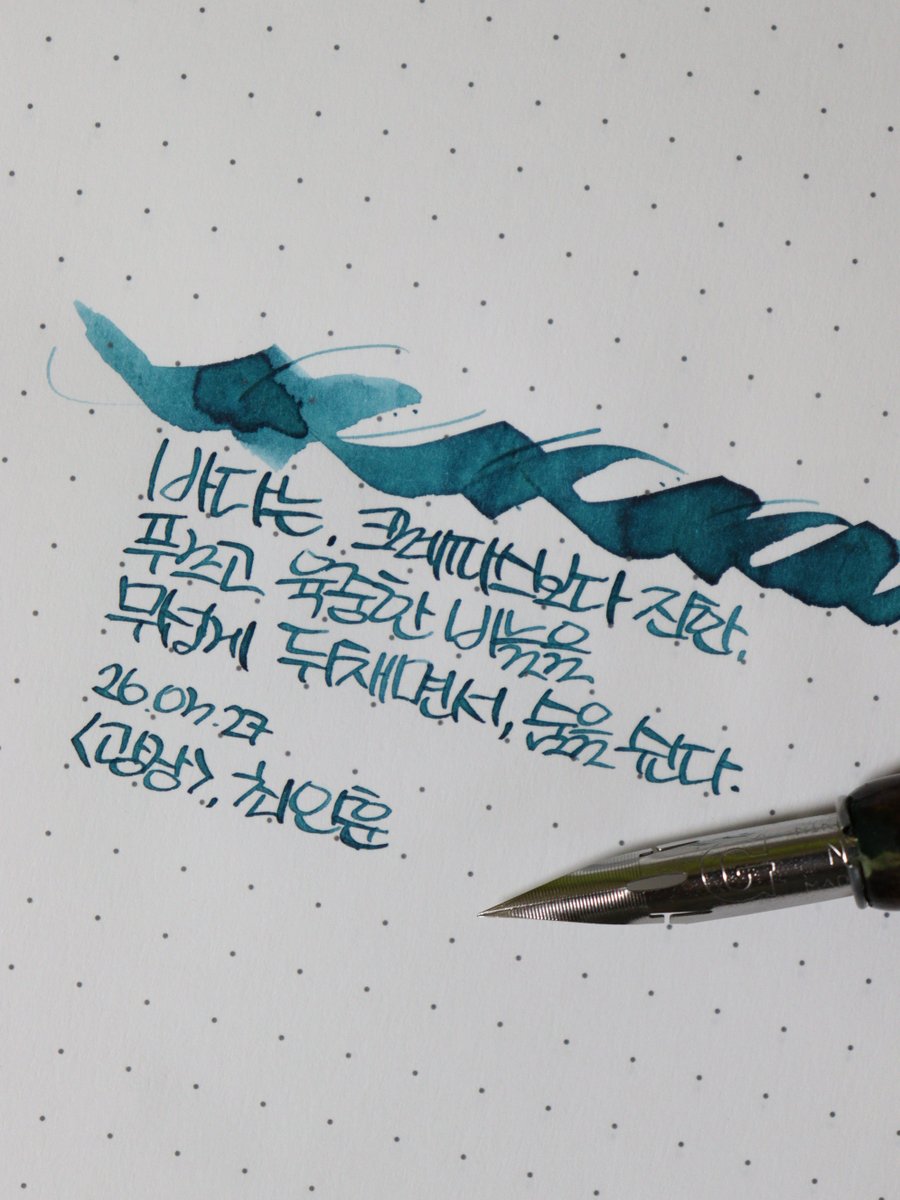 바다는, 크레파스보다 진한,
푸르고 육중한 비늘을
무겁게 뒤채면서, 숨을 쉰다.
26.07.27
<광장>, 최인훈
G
N